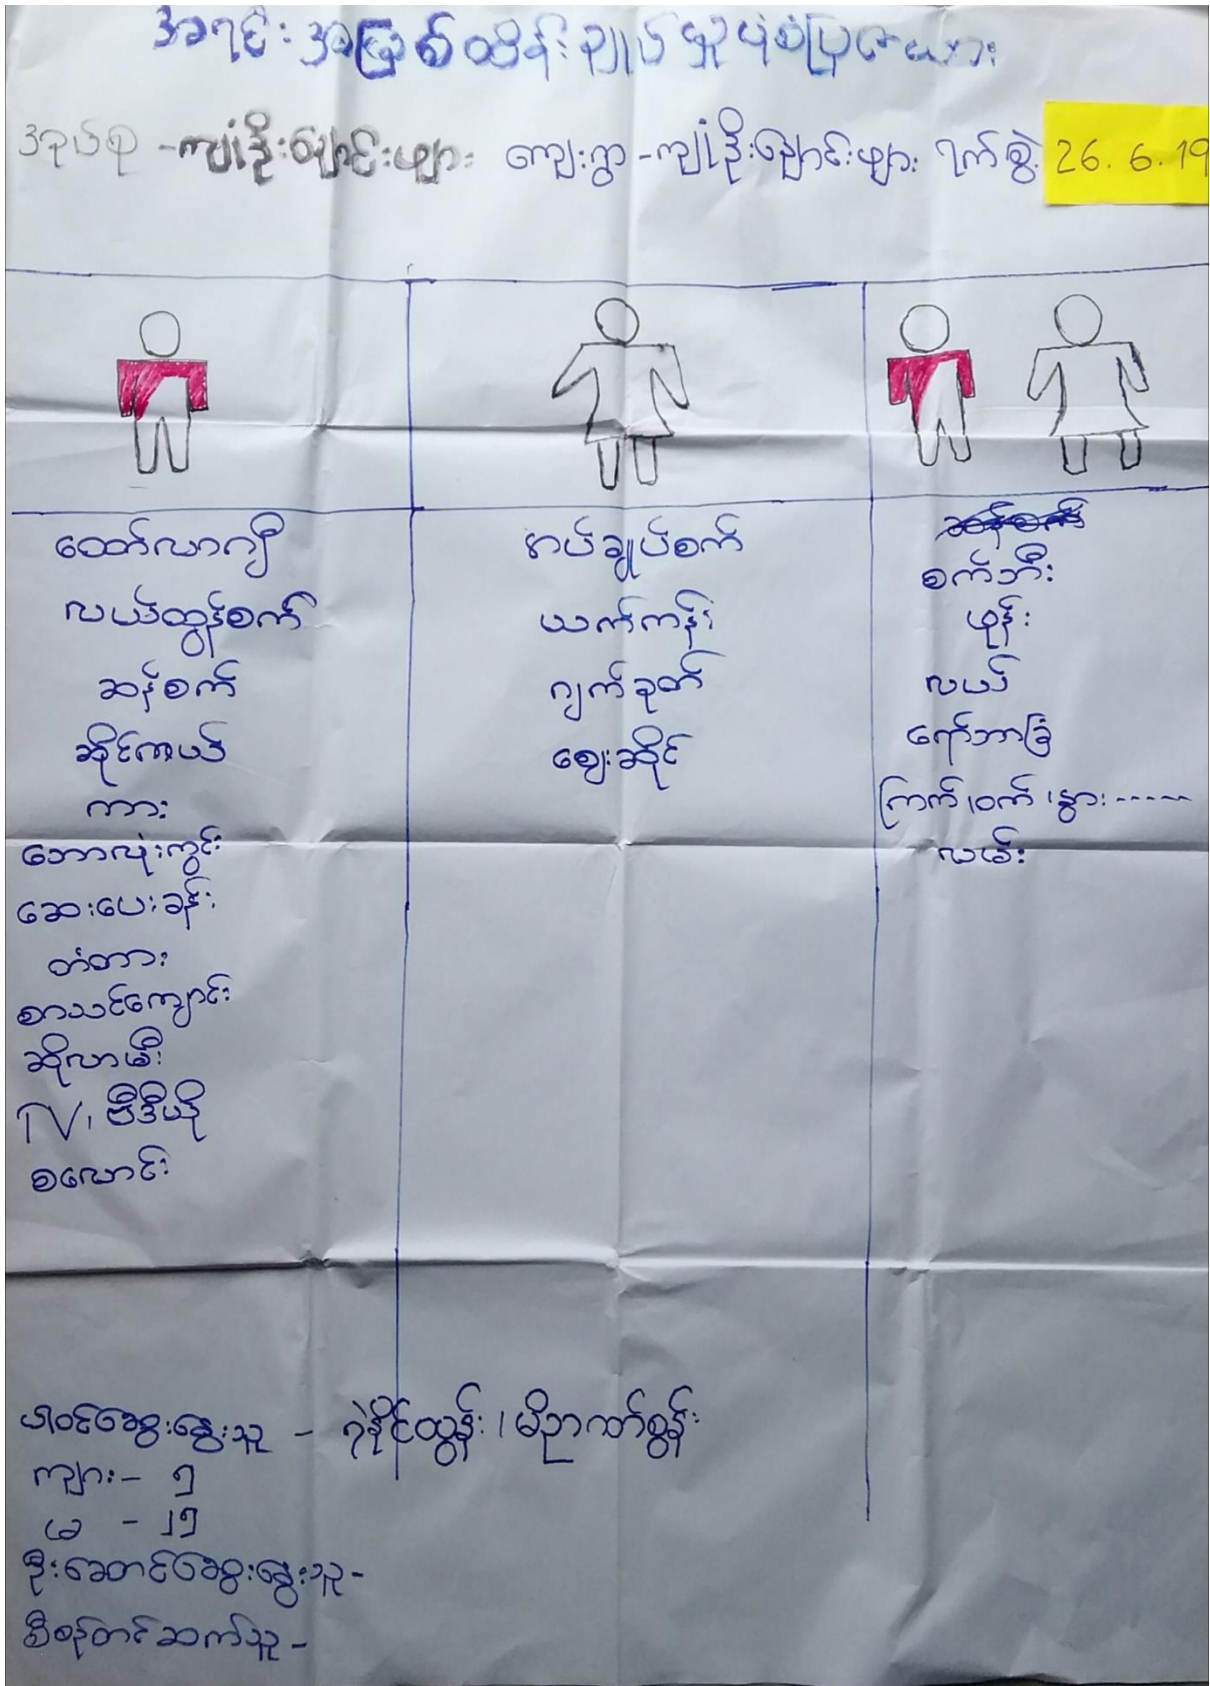 အရင်းအမြစ်ထိန်းချုပ်မှုပုံစံပြဇယား
အုပ်စု - ကျုံဦးချောင်းဖျား ကျေးရွာ - ကျုံဦးချောင်းဖျား ရက်စွဲ 26.6.19
ထော်လာဂျီ
လယ်ထွန်စက်
ဆန်စက်
ဆိုင်ကယ်
ကား
ဘောလုံးကွင်း
ဆေးပေးခန်း
တံတား
စာသင်ကျောင်း
ဆိုလာမီး
TV၊ ဗီဒီယို
စလောင်း
စာပ်ချုပ်စက်
ယက်ကန်း
ဂျက်ခုတ်
ဈေးဆိုင်
စက်ဘီး
ဖုန်း
လယ်
ရော်ဘာခြံ
ကြက်၊ ဝက်၊ နွား-----
လမ်း
ပါဝင်ဆွေးနွေးသူ - ရဲနိုင်ထွန်း၊ မိဉာဏ်စွန်း
ကျား - ၅
မ - ၂၅
ဦးဆောင်ဆွေးနွေးသူ -
စီစဉ်တင်ဆက်သူ -